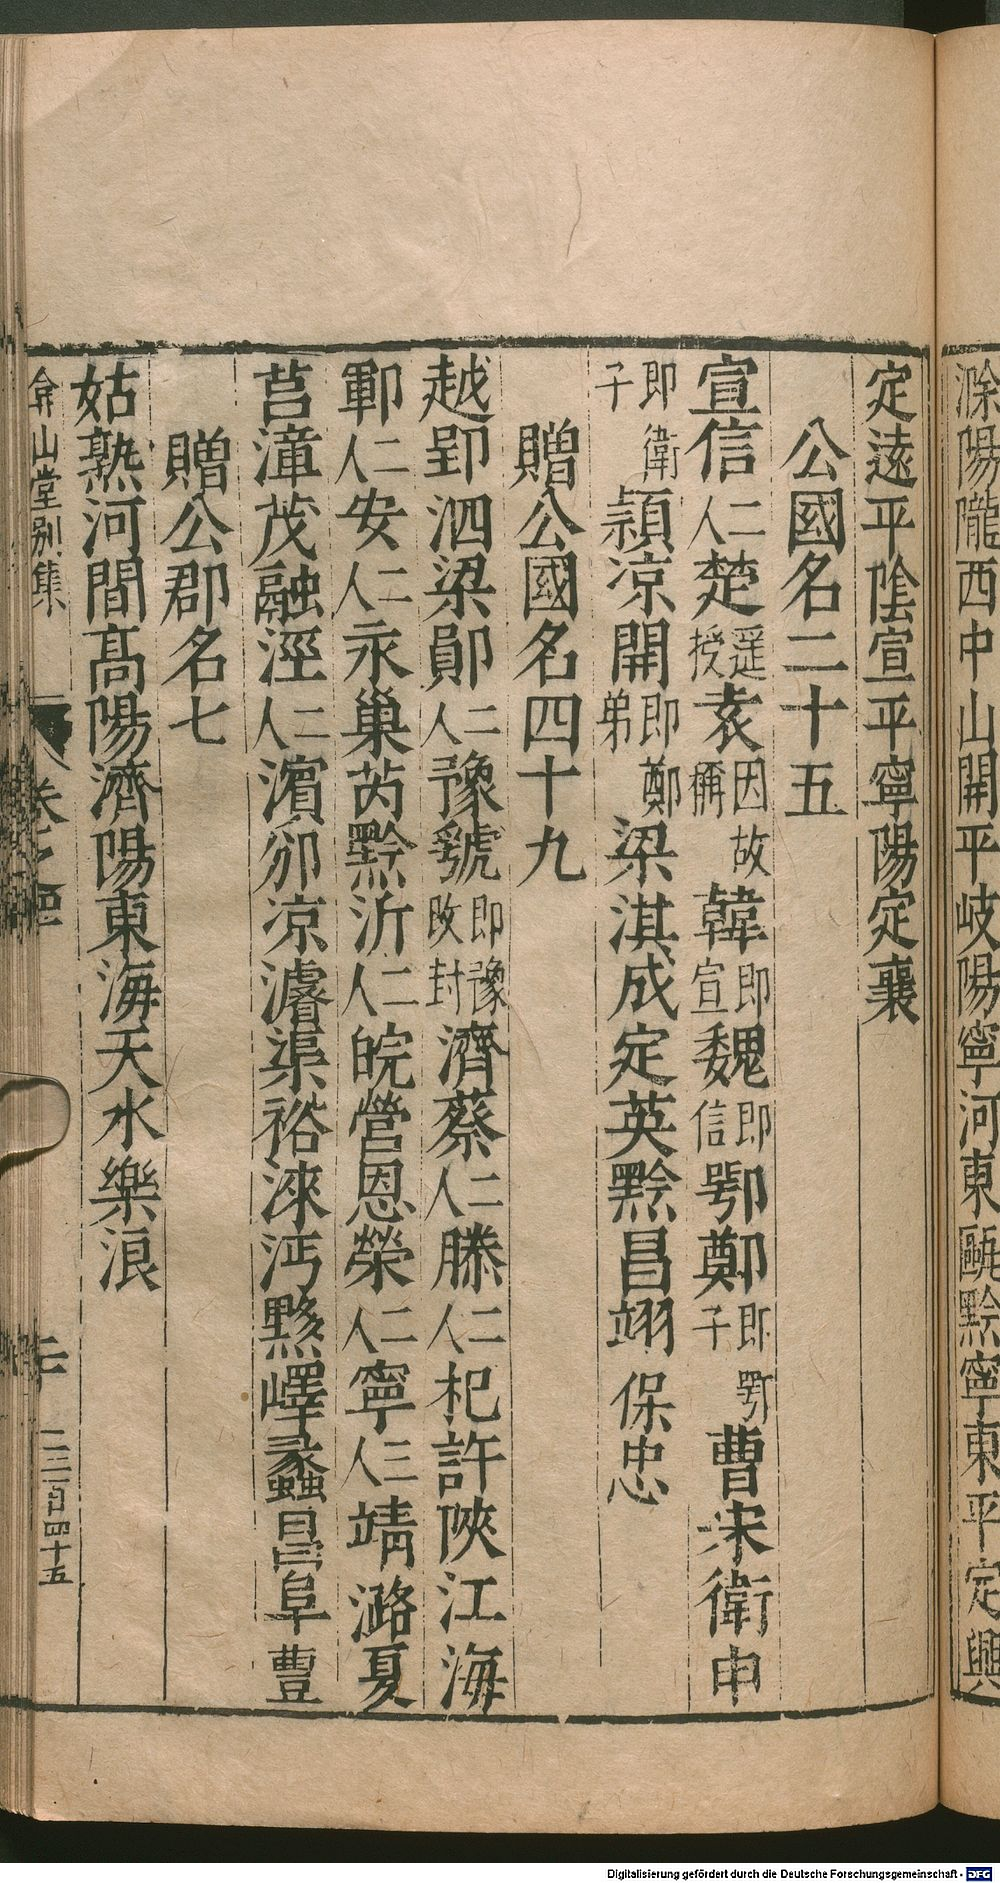 滁陽隴西中山開平岐陽寧河東甌黔寧東平定興
定遠平陰宣平寧陽定襄
公國名二十五
宣信二人楚遥授袁因故稱韓即宣魏即信鄂鄭即鄂子曹宋衛申
即衛子潁凉開即鄭弟梁淇成定英黔昌翊保忠
贈公國名四十九
越郢泗梁鄖二人豫虢即豫改封濟蔡二人滕二人杞許陝江海
鄆二人安二人永巢芮黔沂二人皖營恩榮二人寧三人靖潞夏
莒漳茂融涇二人濱邠凉濬渠裕淶沔黟嶧蠡昌阜豐
贈公郡名七
姑熟河間高陽濟陽東海天水樂浪
弇山堂别集
卷之
二百四十五
Digitalisierung gefördert durch die Deutsche Forschungsgemeinschaft - DFG